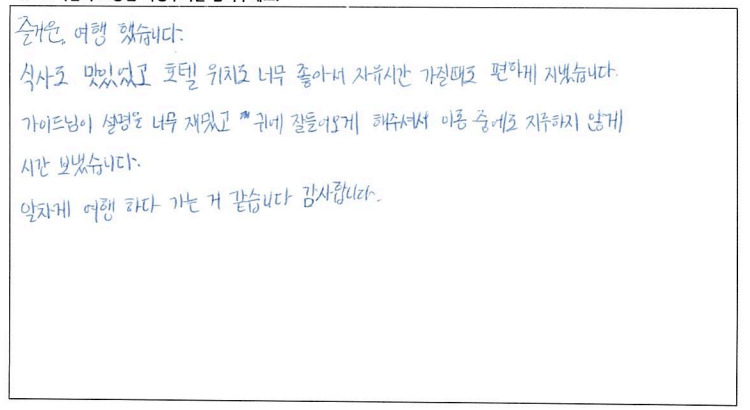 즐거운, 여행 했습니다.
식사도 맛있었고 호텔 위치도 너무 좋아서 자유시간 가질때도 편하게 지냈습니다.
가이드님이 설명을 너무 재밌고 귀에 잘들어오게 해주셔서 이동 중에도 지루하지 않게
시간 보냈습니다.
알차게 여행 하다 가는 거 같습니다 감사합니다.